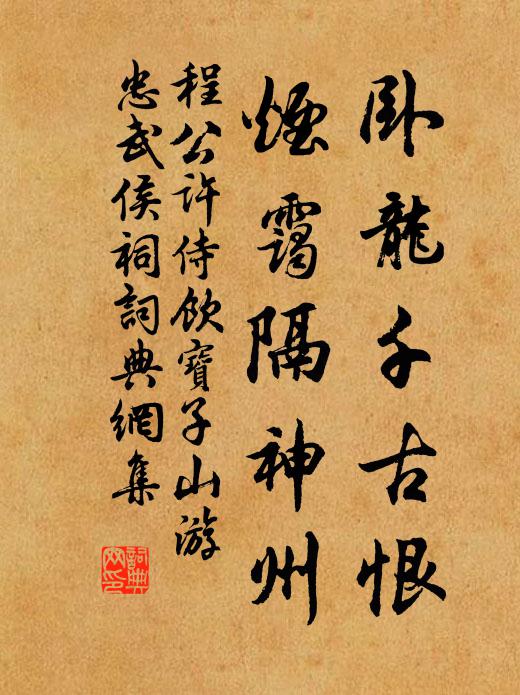 卧龍千古恨
煙靄隔神州
程公許侍飲寶子山游
忠武侯祠詞典網集
詞典网印